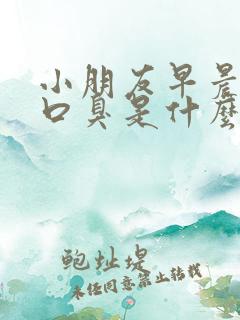 小朋友早晨
口臭是什么
鲍址堤
未经同意禁止转载